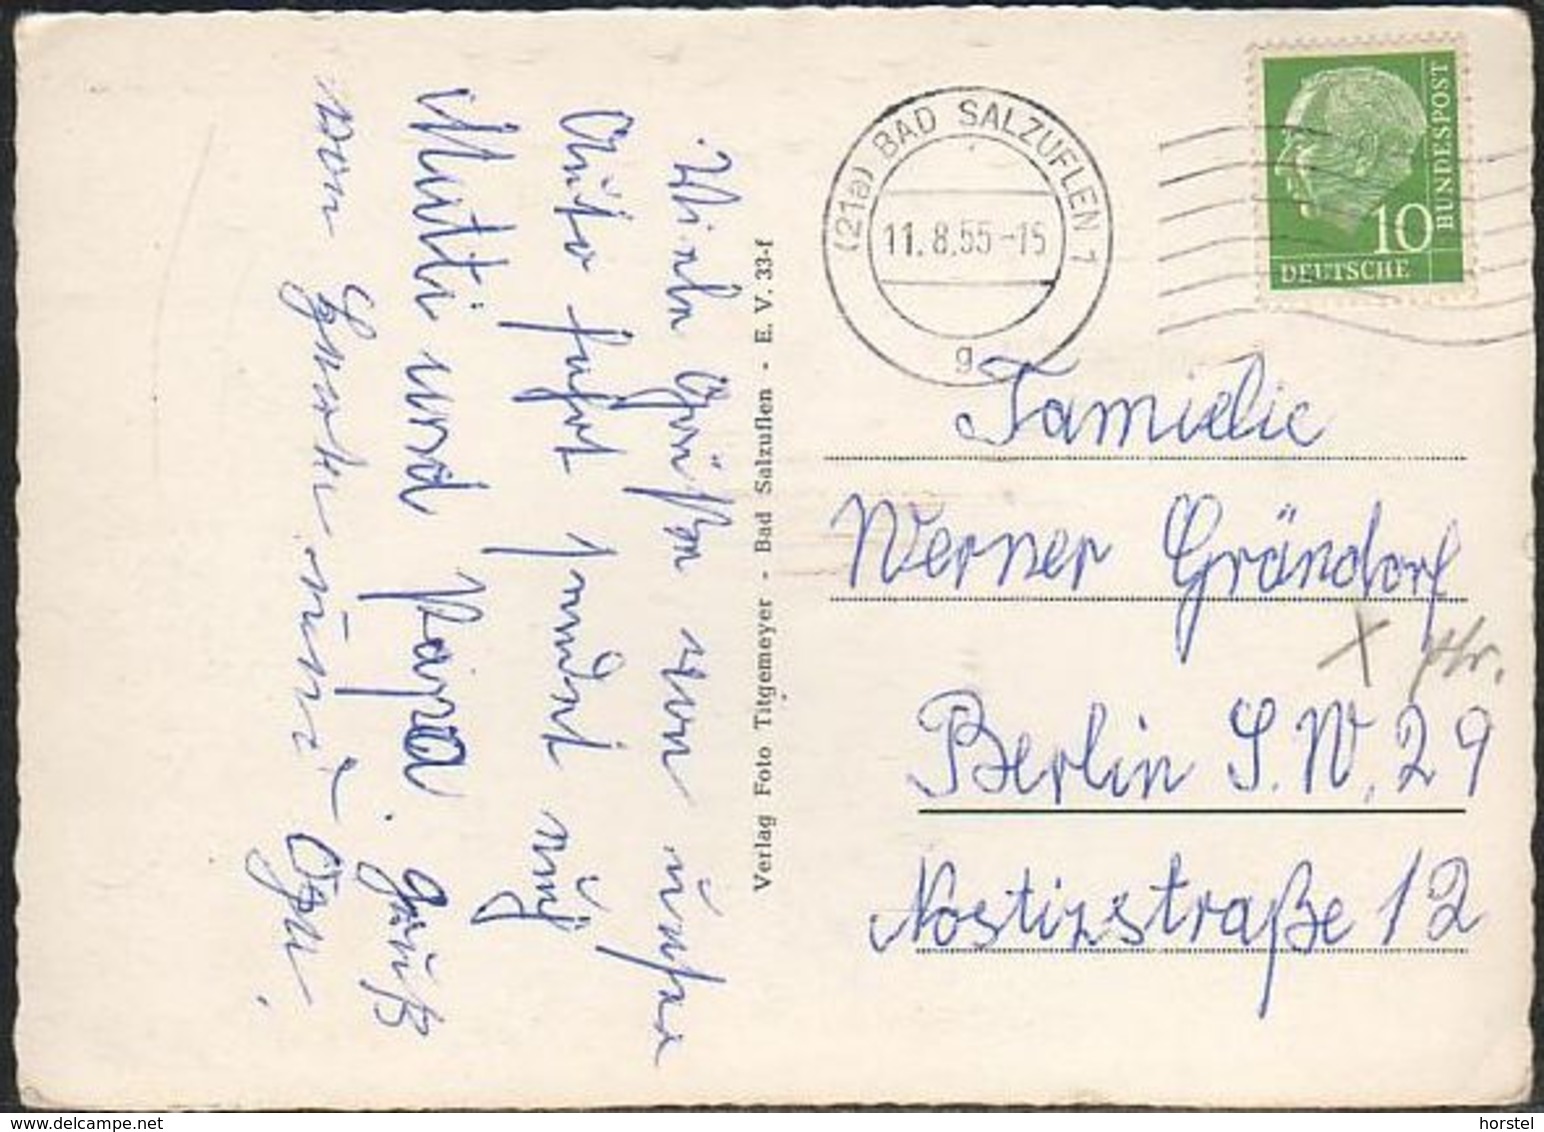 Viele Grüße von unser
Auto fahrt sendet
Mutti und Papa. Gruß
von
(21a) BAD SALZUFLEN 1
11.8.55-15
g
DEUTSCHE
BUNDESPOST
10
Familie
Werner Gründorf
Berlin S.W. 29
Nostizstraße 12
Verlag Foto Titgemeyer - Bad Salzuflen - E. V. 33-f
delcampe.net
horstel